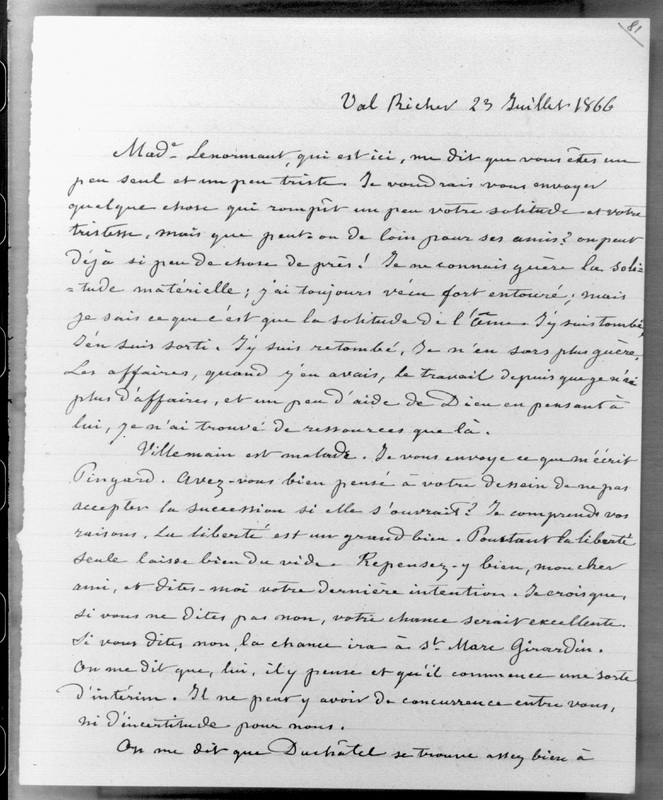 81
Val Richer 23 Juillet 1866
Made Lenormant, qui est ici, me dit que vous êtes un
peu seul et un peu triste. Je voudrais vous envoyer
quelque chose qui rompît un peu votre solitude et votre
tristesse, mais que peut-on de loin pour ses amis? on peut
déjà si peu de chose de près! Je ne connais guère la soli-
=tude matérielle; j'ai toujours vécu fort entouré; mais
je sais ce que c'est que la solitude de l'âme. J'y suis tombé,
J'en suis sorti. J'y suis retombé. Je n'en sors plus guère.
Les affaires, quand j'en avais, le travail depuis que je n'ai
plus d'affaires, et un peu d'aide de Dieu en pensant à
lui, je n'ai trouvé de ressources que là.
Villemain est malade. Je vous envoye ce que m'écrit
Pingard. Avez-vous bien pensé à votre dessein de ne pas
accepter la succession si elle s'ouvrait? Je comprends vos
raisons. La liberté est un grand bien. Pourtant la liberté
seule laisse bien du vide. Repensez-y bien, mon cher
ami, et dites-moi votre dernière intention. Je crois que,
si vous ne dites pas non, votre chance serait excellente.
Si vous dites non, la chance ira à St Marc Girardin.
On me dit que, lui, il y pense et qu'il commence une sorte
d'intérim. Il ne peut y avoir de concurrence entre vous,
ni d'incertitude pour nous.
On me dit que Duchâtel se trouve assez bien à